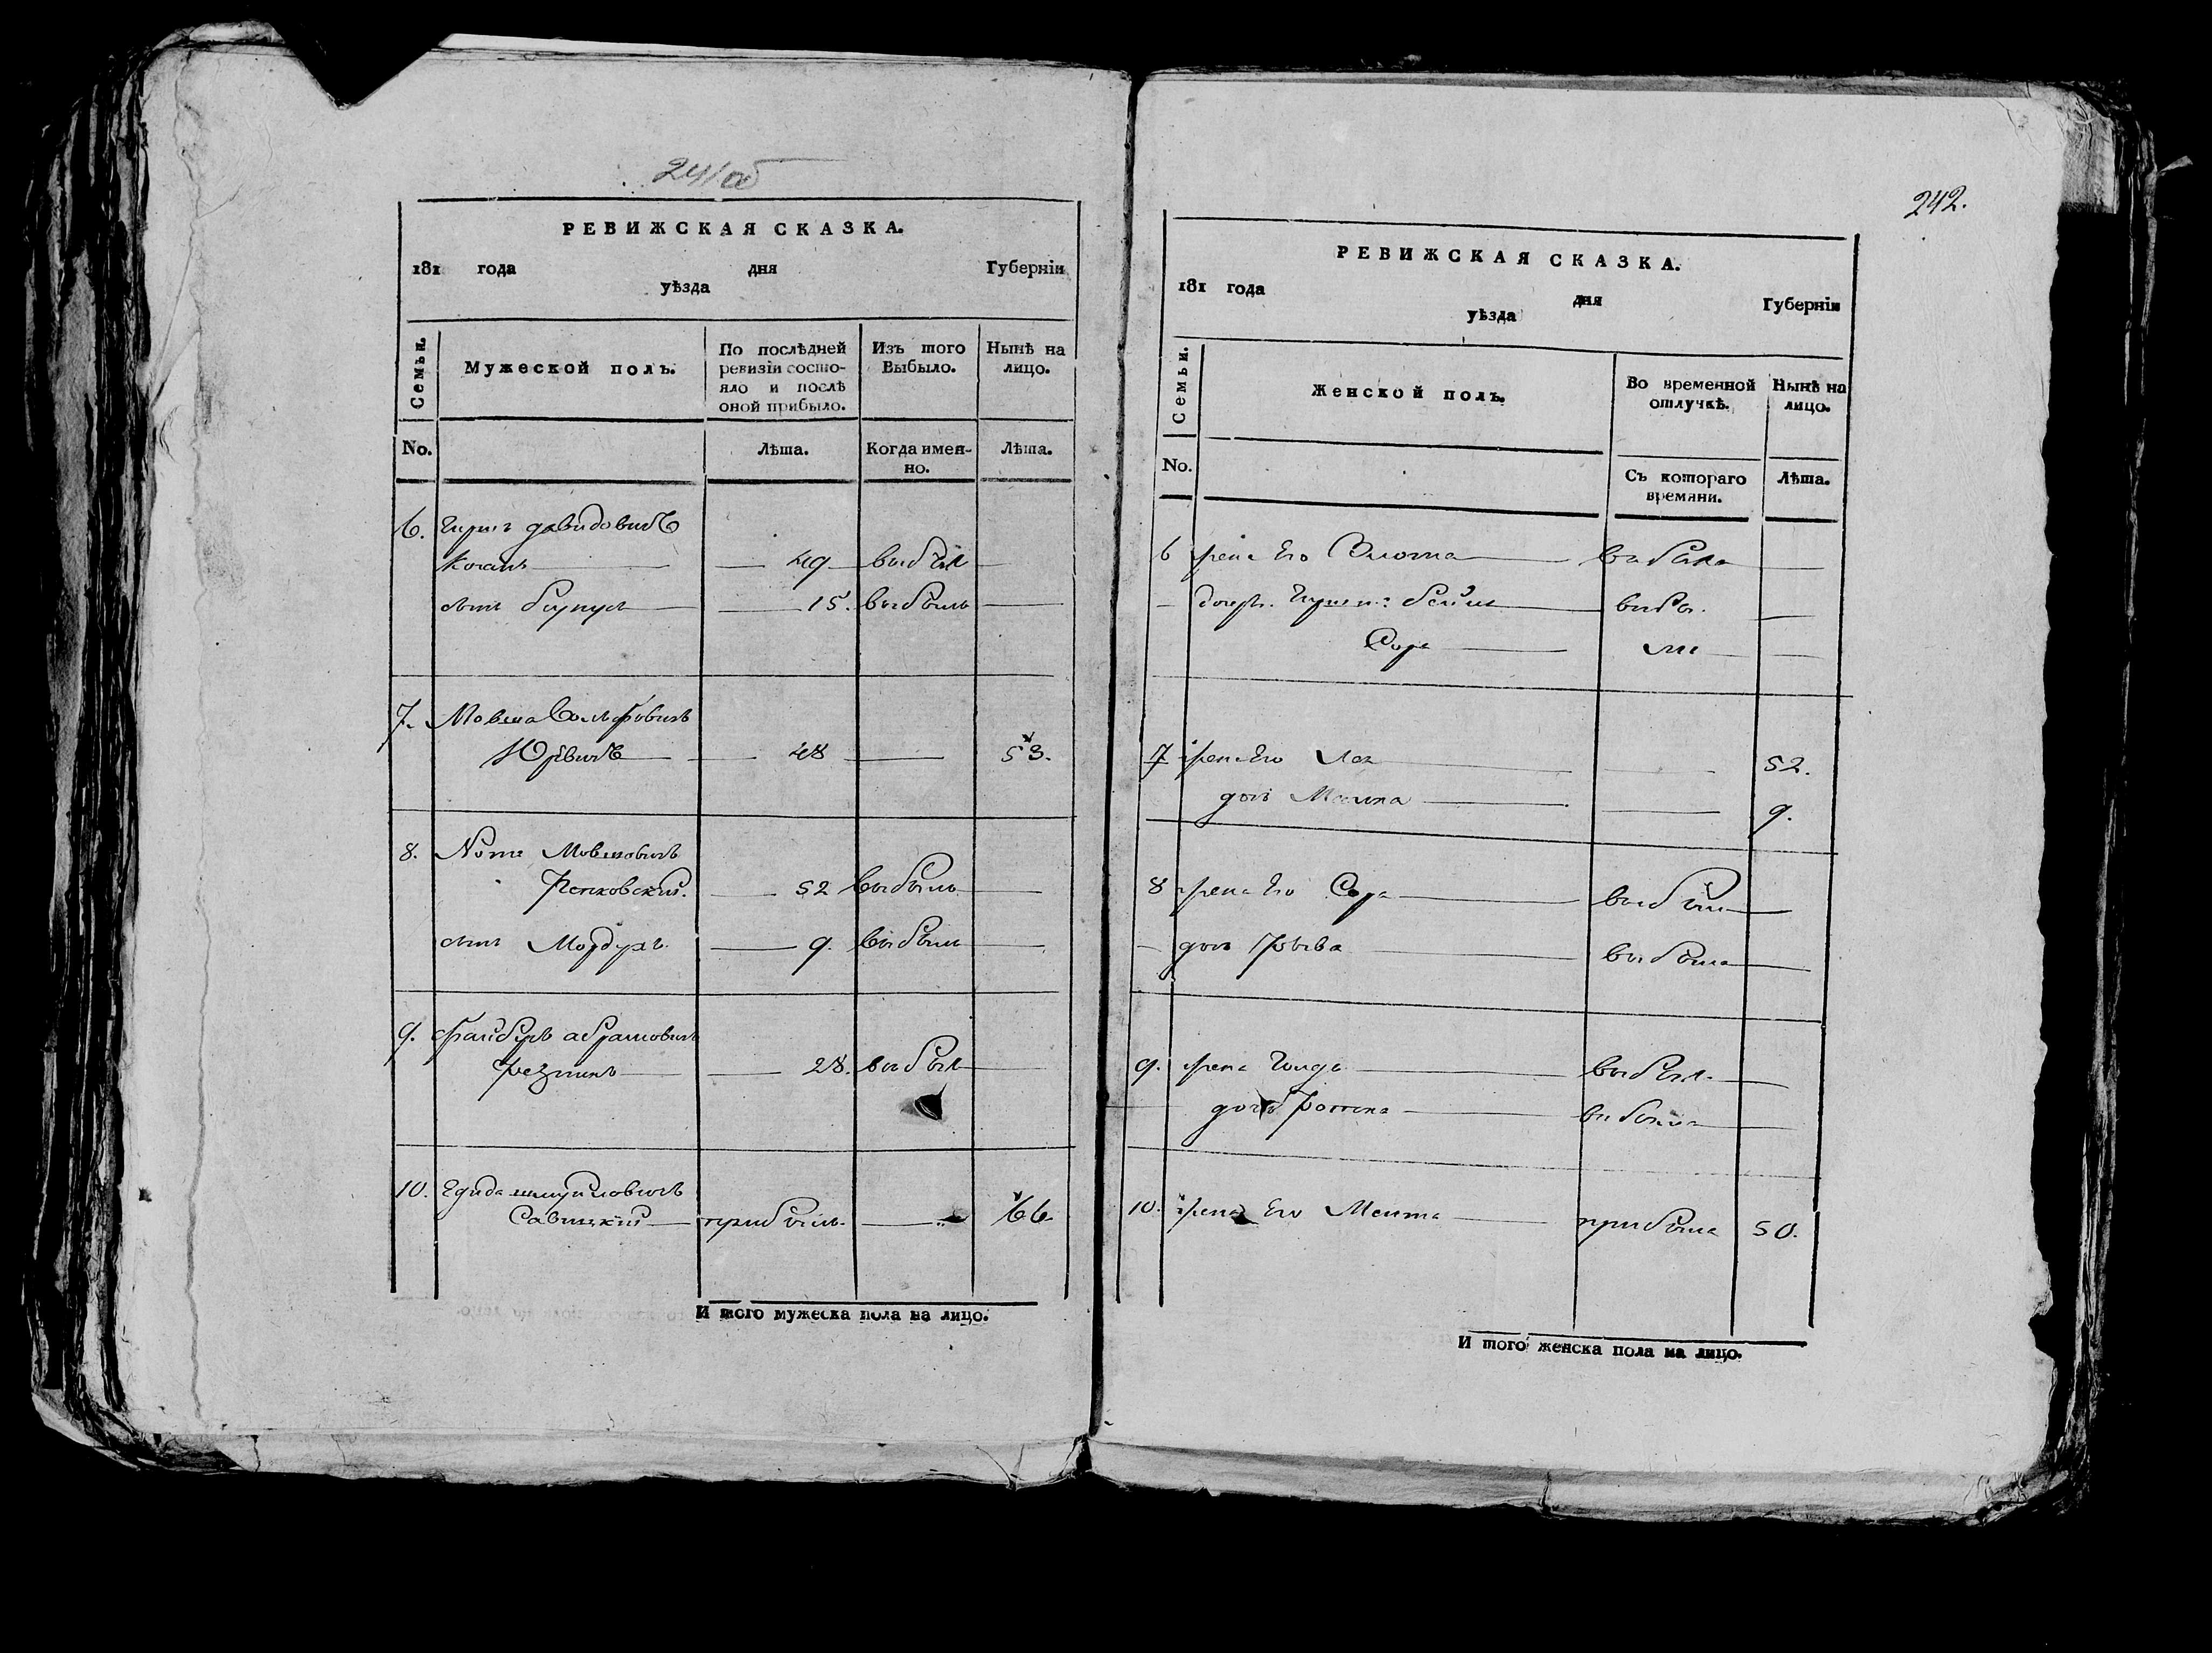 241об
РЕВИЖСКАЯ СКАЗКА.
181 года дня Губерніи
уѣзда
Семьи.
Мужеской полъ.
По послѣдней ревизіи состо-
яло и послѣ
оной прибыло.
Изъ того
Выбыло.
Нынѣ на
лицо.
No.
Лѣта.
Когда имен-
но.
Лѣта.
6. давидовичъ
Коганъ 49 выбылъ
сынъ 15. выбылъ
7. Мовша Вольфовичъ
48 53.
8. Нота Мовшовичъ
52 выбылъ
сынъ Мордухъ 9. выбылъ
9. абрамовичъ
Резникъ 28. выбылъ
10. шмуйловичъ
Савицкій прибылъ 66
И того мужеска пола на лицо.
242.
РЕВИЖСКАЯ СКАЗКА.
181 года дня Губерніи
уѣзда
Семьи.
Женской полъ.
Во временной
отлучкѣ.
Нынѣ на
лицо.
No.
Съ котораго
времяни.
Лѣта.
6 жена Его Злота выбыла
дочерь выбы.
Сора ли
7 жена Его Лея 52.
дочь 9.
8 жена Его Сора выбыла
дочь Рыва выбыла
9. жена Голда выбыл.
дочь выбыла
10. жена Его прибыла 50.
И того женска пола на лицо.